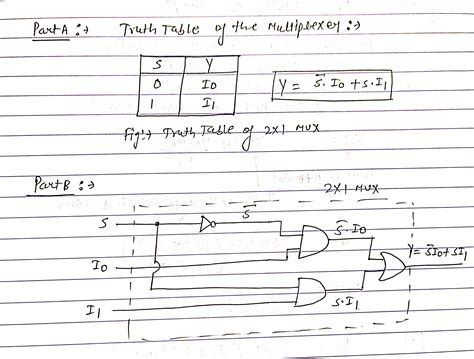 Part A :→ Truth Table of the Multiplexer :→
S Y
0 I0
1 I1
Y = S̅.I0 + S.I1
Fig:→ Truth Table of 2X1 MUX
Part B :→
2X1 MUX
S S̅
S̅.I0
I0
Y = S̅I0+SI1
I1 S.I1